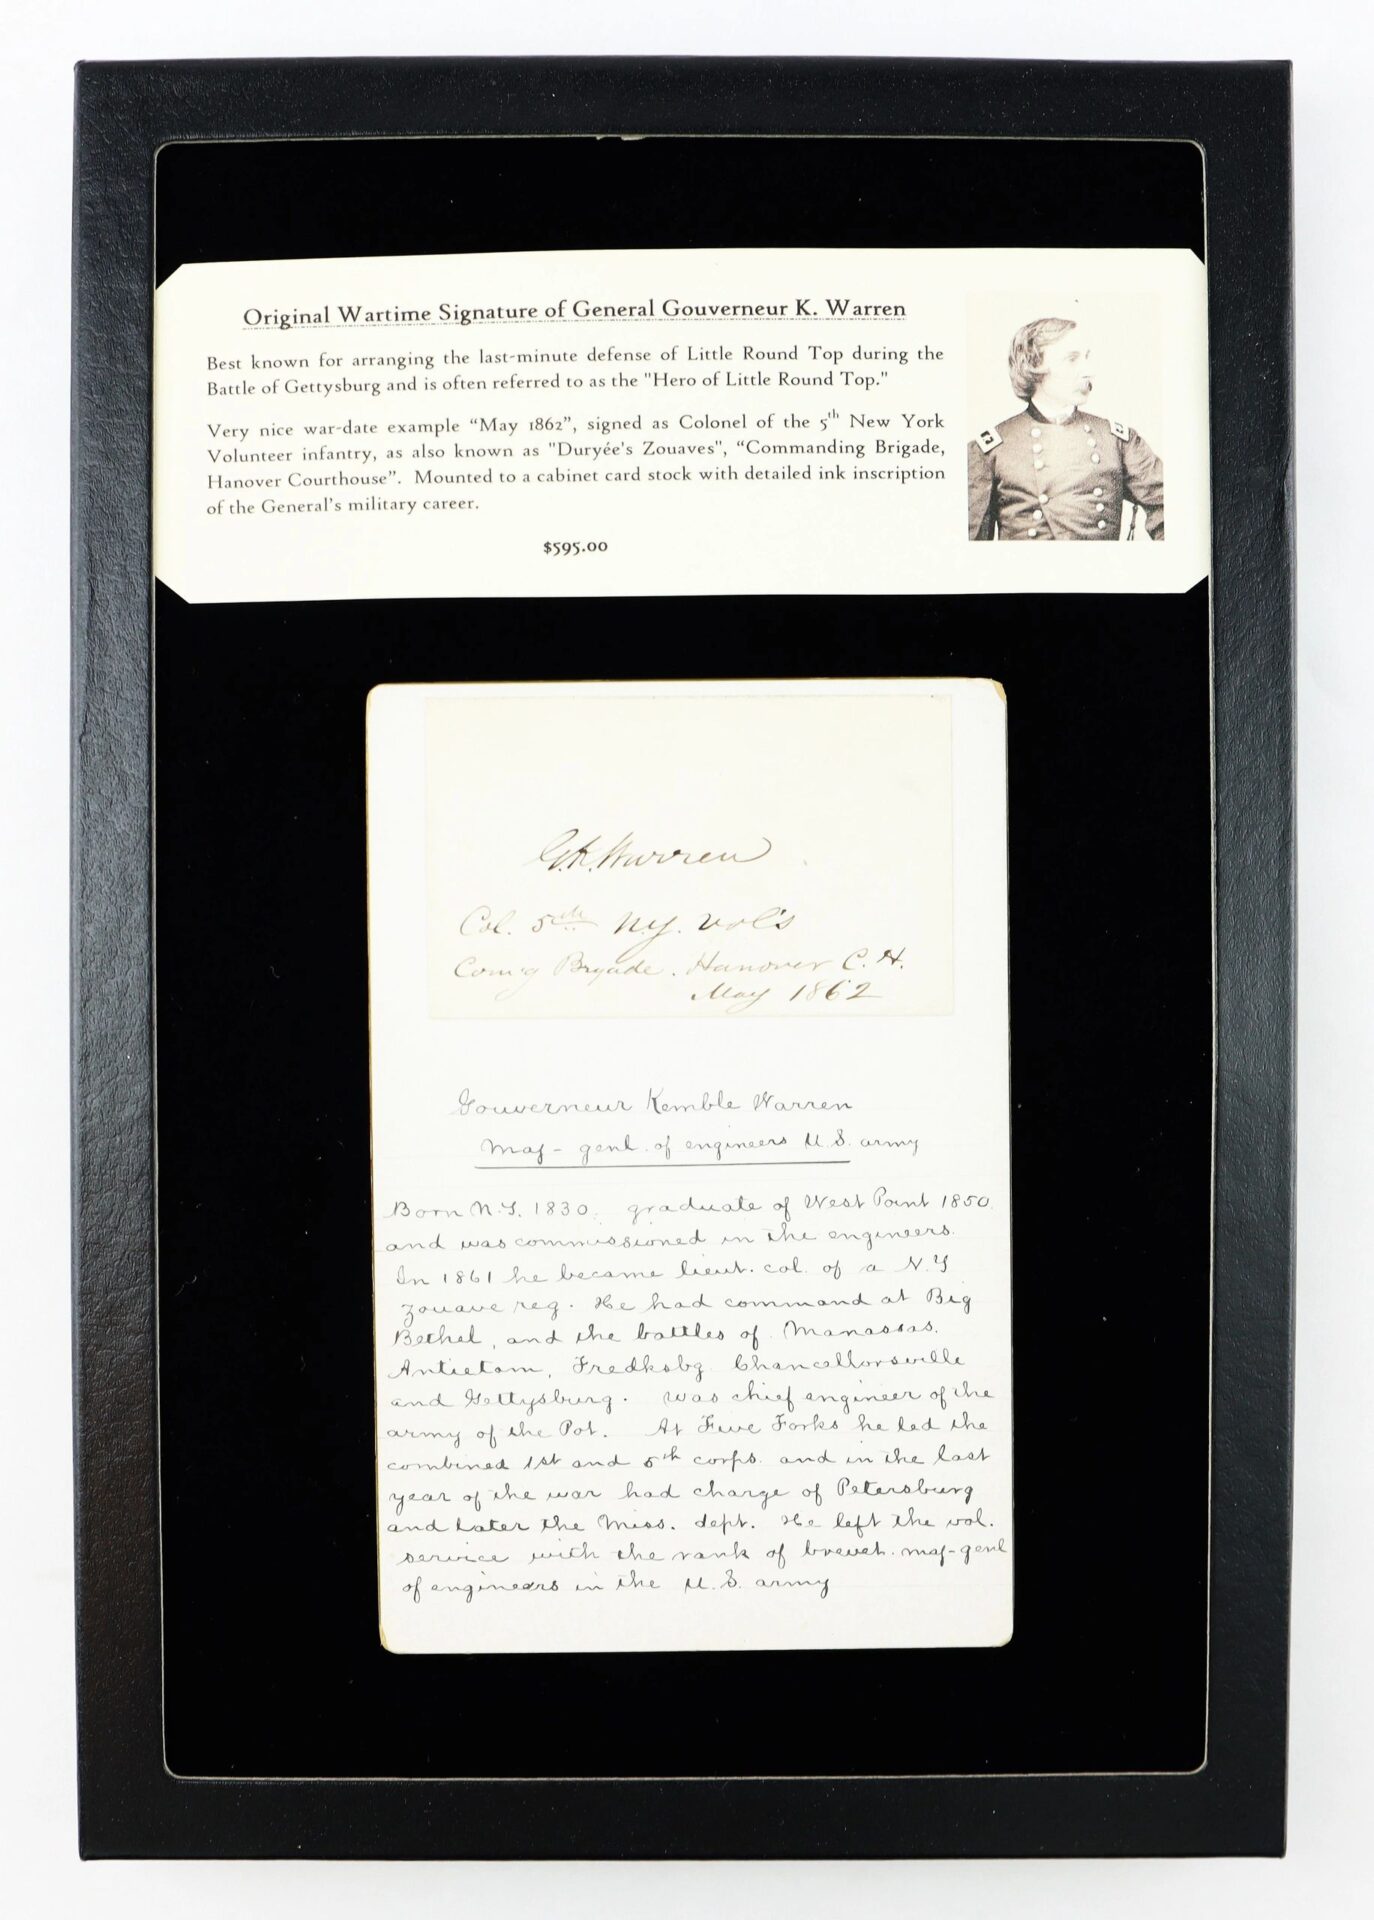 Original Wartime Signature of General Gouverneur K. Warren
Best known for arranging the last-minute defense of Little Round Top during the
Battle of Gettysburg and is often referred to as the "Hero of Little Round Top."
Very nice war-date example “May 1862”, signed as Colonel of the 5th New York
Volunteer infantry, as also known as "Duryée's Zouaves", “Commanding Brigade,
Hanover Courthouse”. Mounted to a cabinet card stock with detailed ink inscription
of the General's military career.
$595.00
G.K. Warren
Col. 5th N.Y. Vol's
Com'g Brgade. Hanover C. H.
May 1862
Gouverneur Kemble Warren
Maj-genl. of engineers U.S. army
Born N.Y. 1830. graduate of West Point 1850.
and was commissioned in the engineers.
In 1861 he became lieut. col. of a N.Y
Zouave reg. He had command at Big
Bethel, and the battles of Manassas.
Antietam, Fredksbg Chancellorsville
and Gettysburg. was chief engineer of the
army of the Pot. At Five Forks he led the
combined 1st and 5th corps. and in the last
year of the war had charge of Petersburg
and later the Miss. dept. He left the vol.
service with the rank of brevet. maj-genl
of engineers in the U.S. army